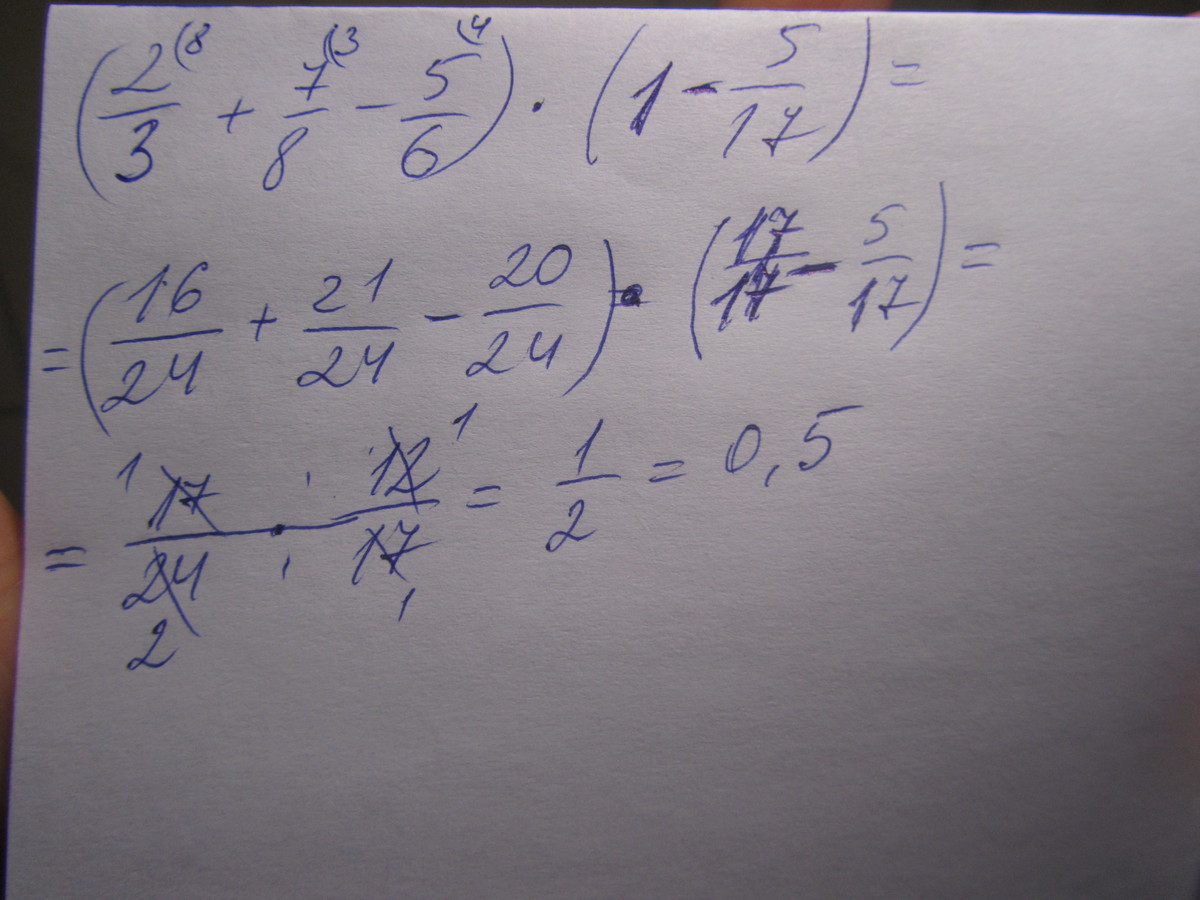 (2/3 (8 + 7/8 (3 - 5/6 (4) · (1 - 5/17) =
= (16/24 + 21/24 - 20/24) · (17/17 - 5/17) =
= 1 17/24 2 · 12 1/17 1 = 1/2 = 0,5